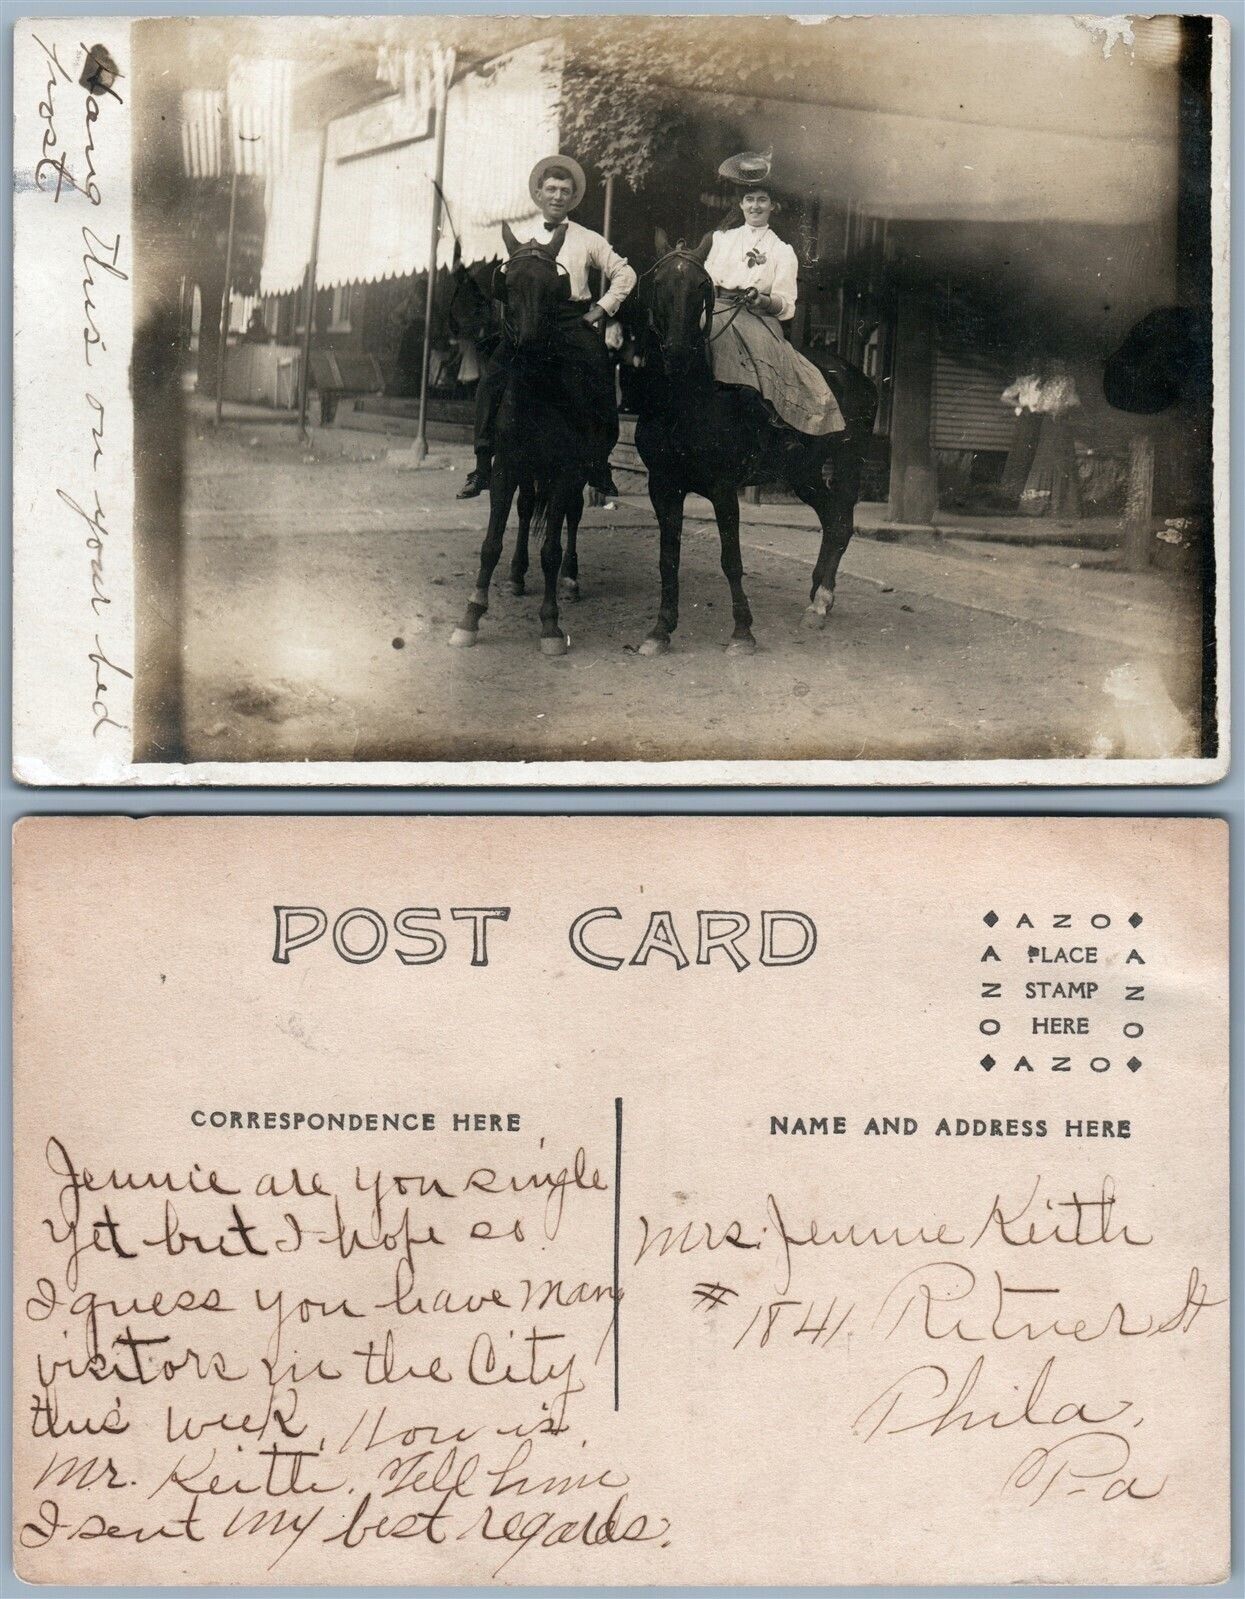 Hang This on your bed
post.
POST CARD
AZO
A PLACE A
N STAMP N
O HERE O
AZO
CORRESPONDENCE HERE
NAME AND ADDRESS HERE
Jennie are you single
yet but I hope so.
I guess you have many
visitors in the City
this week. How is
Mr. Keith. Tell him
I sent my best regards.
Mrs. Jennie Keith
# 1841 Ritner St
Phila,
Pa